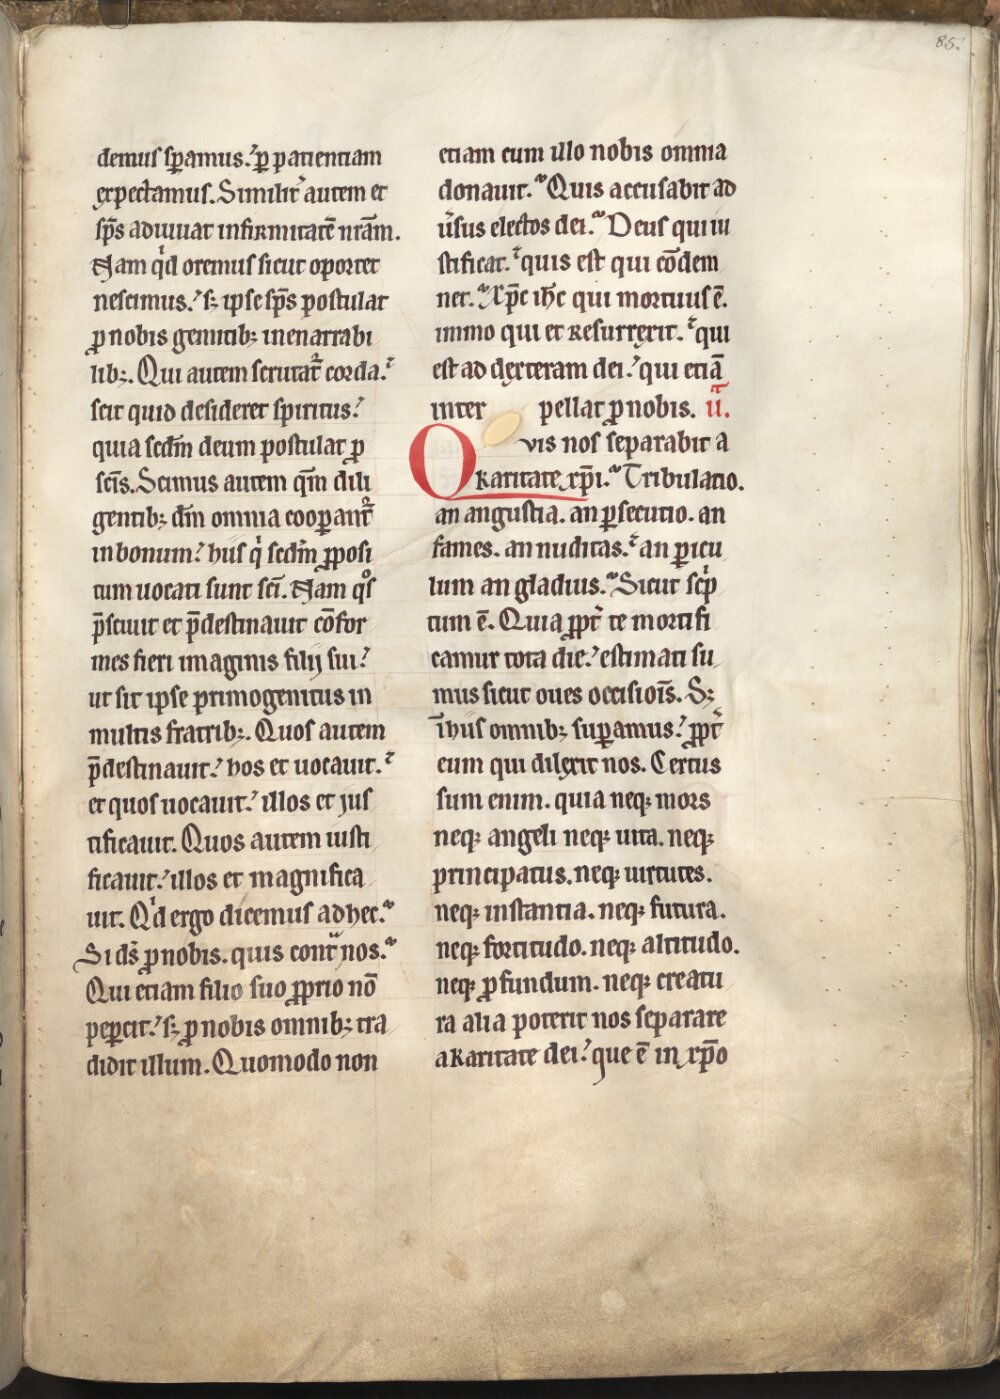 85.
demus sp̄amus.ˀ ꝑ patientiam
expectamus. Similit᷑ autem et
sp̄s adiuuat infirmitatē nr̄am.
Nam qͥd oremus sicut oportet
nescimus.ˀ sꝫ ipse sp̄s postulat
ꝓ nobis gemitibꝫ inenarrabi
libꝫ. Qui autem scrutat᷑ corda.
scit quid desideret spiritus.ˀ
quia scdm̄ deum postulat ꝓ
scīs. Scimus autem qm̄ dili
gentibꝫ dm̄ omnia cooꝑant᷑
in bonum.ˀ hiis qͥ scdm̄ ꝓposi
tum uocati sunt scī. Nam qͦs
p̄sciuit et p̄destinauit cōfor
mes fieri imaginis filij sui.ˀ
ut sit ipse primogenitus in
multis fratribꝫ. Quos autem
p̄destinauit.ˀ hos et uocauit.
et quos uocauit.ˀ illos et jus
tificauit. Quos autem iusti
ficauit.ˀ illos et magnifica
uit. Qͥd ergo dicemus ad hec.
Si ds̄ ꝓ nobis. quis contᷓ nos.
Qui etiam filio suo ꝓprio nō
peꝑcit.ˀ sꝫ ꝓ nobis omnibꝫ tra
didit illum. Quomodo non
etiam cum illo nobis omnia
donauit. Quis accusabit ad
ūsus electos dei. Deus qui iu
stificat. quis est qui cōdem
net. Xp̄c ih̄c qui mortuus ē.
immo qui et Resurrexit. qui
est ad dexteram dei.ˀ qui etiā
inter pellat ꝓ nobis. ū.
Qvis nos separabit a
karitate xp̄i. Tribulatio.
an angustia. an ꝑsecutio. an
fames. an nuditas. an ꝑicu
lum an gladius. Sicut scͥp
tum ē. Quia ꝓpt᷑ te mortifi
camur tota die.ˀ estimati su
mus sicut oues occisiōis. Sꝫ
ī hiis omnibꝫ suꝑamus.ˀ ꝓpt᷑
eum qui dilexit nos. Certus
sum enim. quia neqꝫ mors
neqꝫ angeli neqꝫ uita. neqꝫ
principatus. neqꝫ uirtutes.
neqꝫ instantia. neqꝫ futura.
neqꝫ fortitudo. neqꝫ altitudo.
neqꝫ ꝓfundum. neqꝫ creatu
ra alia poterit nos separare
a karitate dei.ˀ que ē in xp̄o